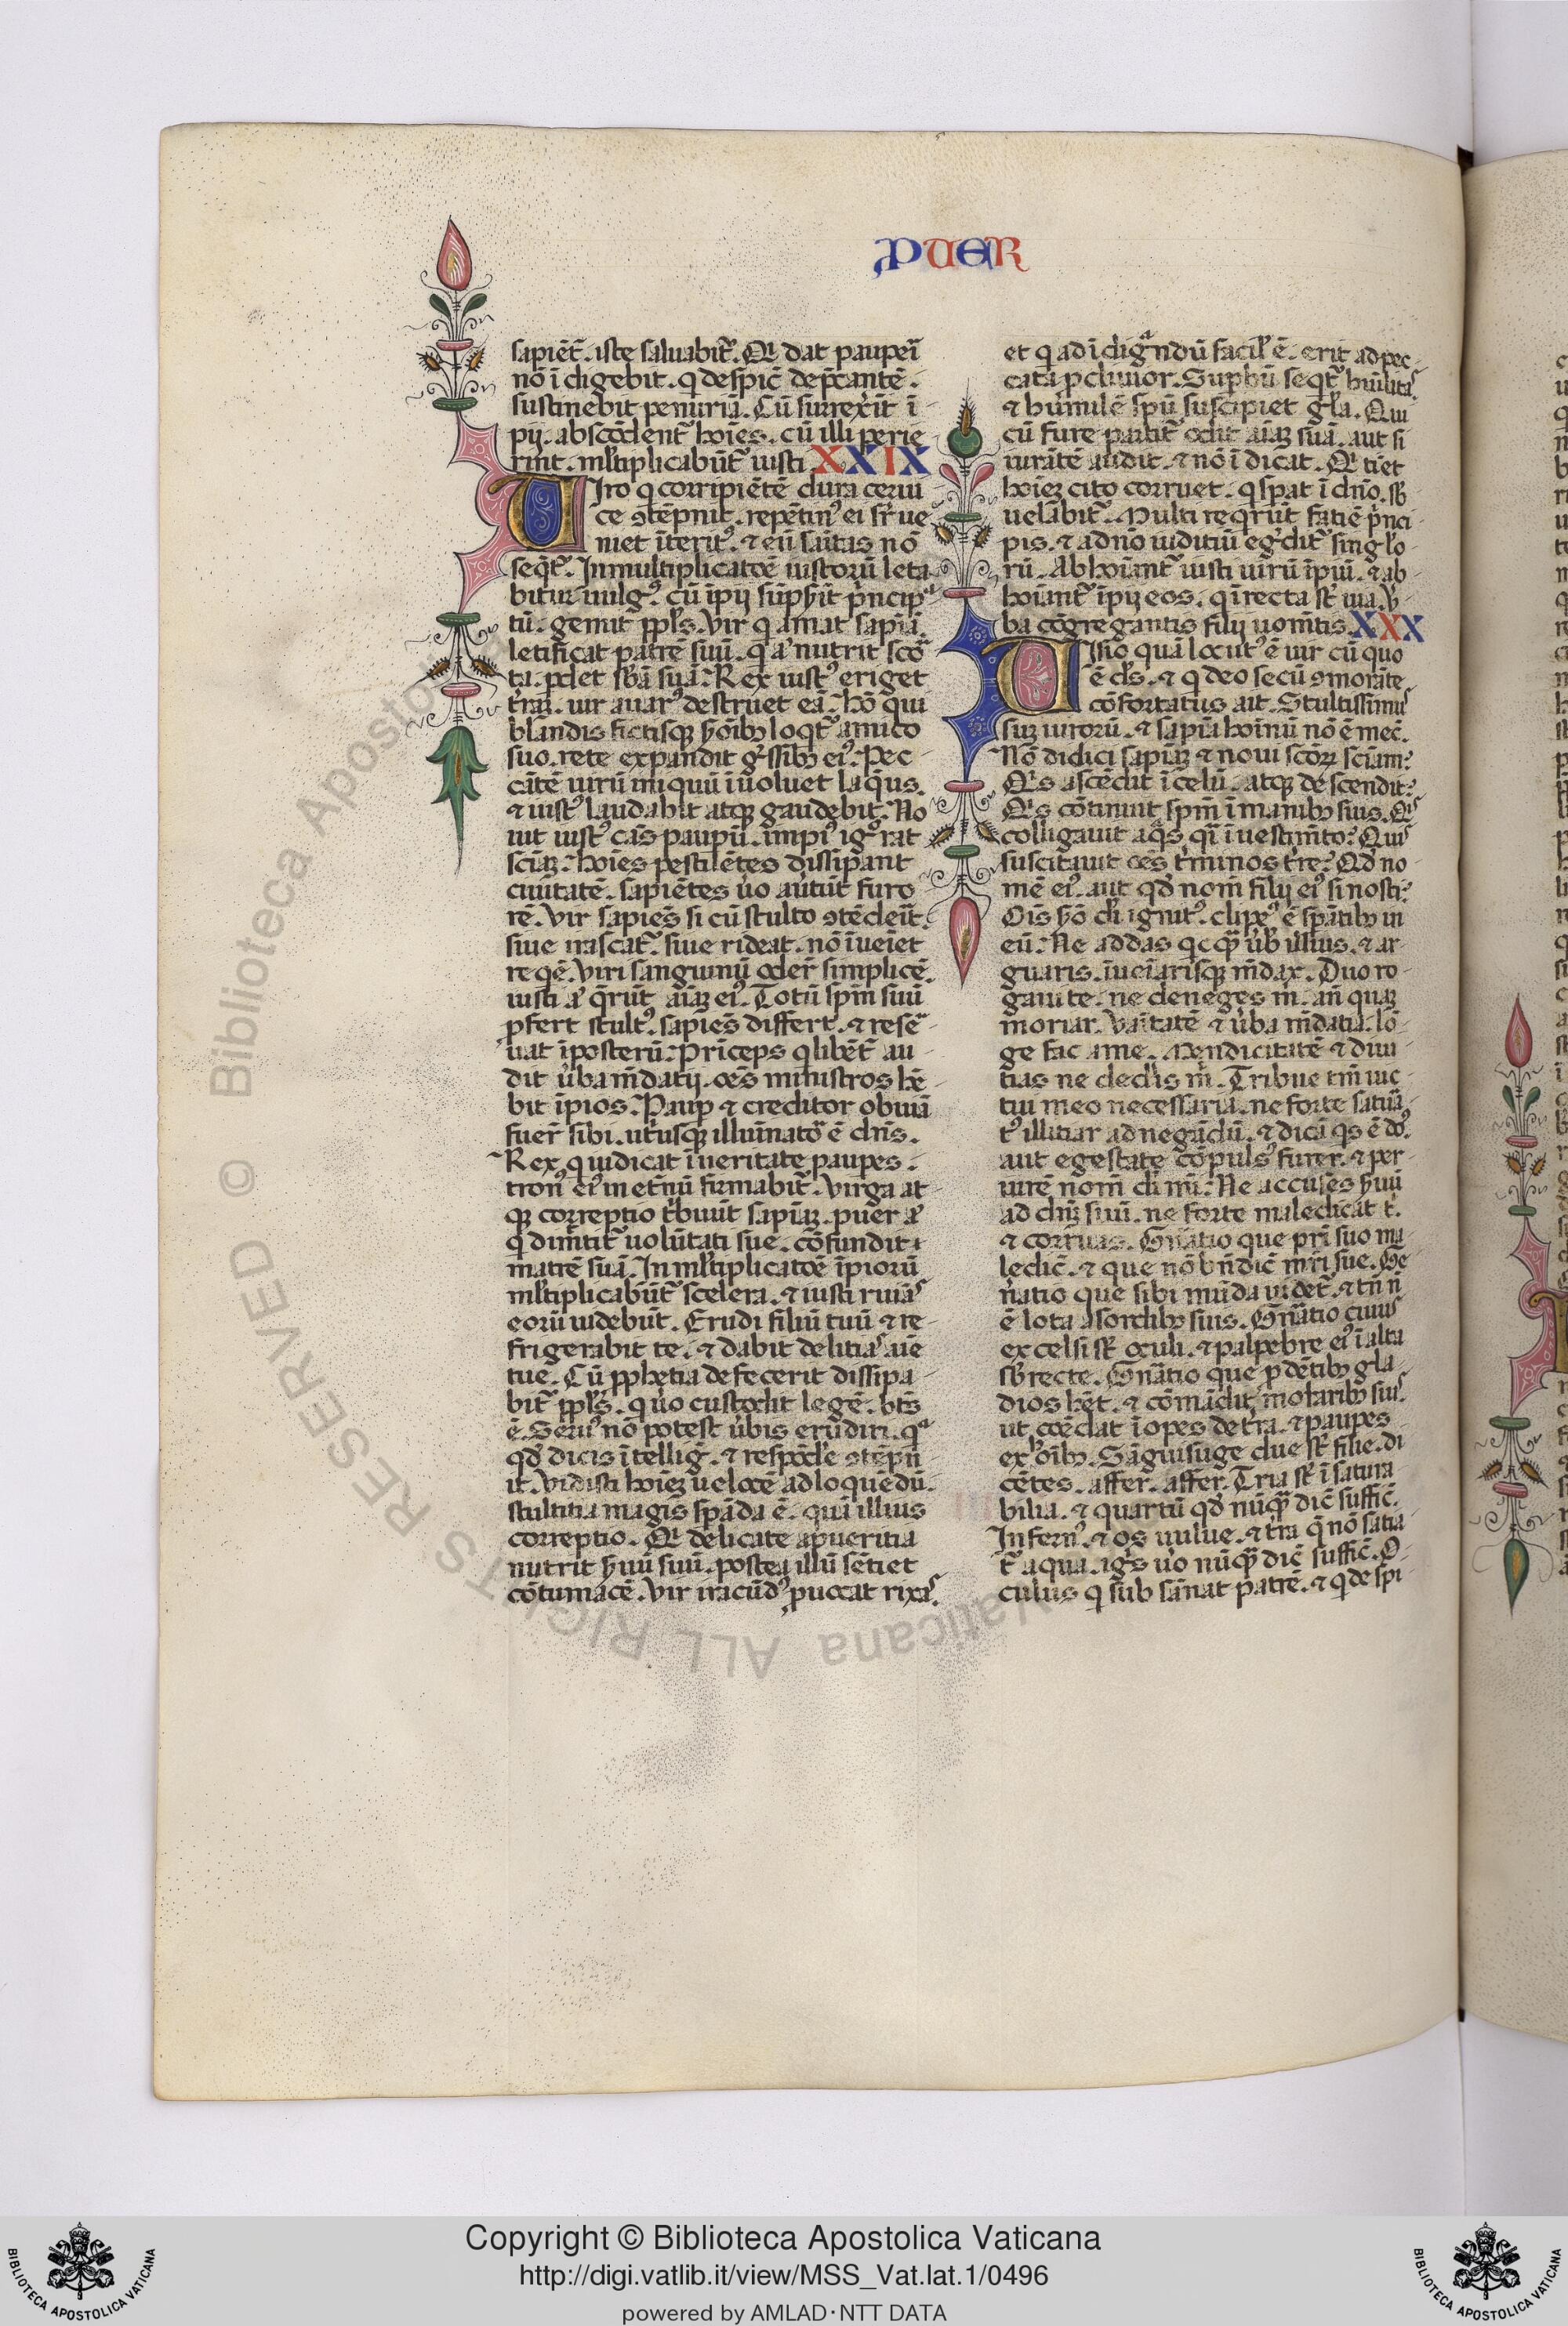 PUER
sapiēt̄. iste saluabit᷑. Qi dat pauperī
nō ī digebit. q despic̄ dep̄cantē.
sustinebit penuriā. Cū surrexīt ī
pij. abscōdent᷑ hoīes. cū illi perie
rīnt. ml̄tiplicabūt᷑ iusti. XXIX
UIro q corripiētē dura cerui
ce ꝯtēpnit. repētinꝰ ei sr̄ ue
niet īteritꝰ. ⁊ eū sāitas nō
seqt᷑. In multiplicatōē iustorū leta
bitur uulgꝰ. cū īpij sūpsīt p̄ncipa
tū. gemit ppl̄s. Vir q amat sapīā.
letificat patrē suū. q aͥ nutrit scō
ta. pdet sb̄ā suā. Rex iustꝰ eriget
t̄raz. uir auarꝰ destruet eā. Hō qui
blandis fictisqꝫ ẜōibꝫ loqt᷑ amico
suo. rete expandit g̊ssibꝫ eiꝰ. Pec
cātē uirū iniquū īuoluet laq̄us.
⁊ iustꝰ laudabit atqꝫ gaudebit. No
uit iustꝰ cās paupū. impiꝰ igͦrat
sciāz. Hoīes pestilētes dissipant
ciuitatē. sapiētes ūo aūtūt furo
rē. Vir sapiēs si cū stulto ꝯtēdeīt.
siue irascat᷑. siue rideat. nō īueīet
reqē. Viri sanguinū oder̄ simplicē.
iusti aͥ q̄rūt aīaz eiꝰ. Totū spm̄ suū
pfert stultꝰ. sapiēs differt. ⁊ resē
uat īposterū. Prīceps q libēt̄ au
dit ūba m̄datij. oēs ministros hē
bit īpios. Paup ⁊ creditor obuiā
fuer̄ sibi. utͥusqꝫ illuīnatoͬ ē dn̄s.
Rex q iudicat ī ueritate paupes.
tronꝰ eiꝰ in et̄nū firmabit᷑. Virga at
qꝫ correptio tͥbuūt sapīaz. puer aͥ
q dimītit᷑ uolūtati sue. cōfundit
matrē suā. In ml̄tiplicatōē īpiorū
ml̄tiplicabūt᷑ scelera. ⁊ iusti ruiāˢ
eorū uidebūt. Erudi filiū tuū ⁊ re
frigerabit te. ⁊ dabit delitiaˢ aīe
tue. Cū pphetia defecerit dissipa
bit᷑ ppl̄s. q ūo custodit legē. bt̄s
ē. Seruꝰ nō potest ūbis erudiri. qͣ
qd̄ dicis ītelliḡ. ⁊ respōde ꝯtēpn̄
it. Vidisti hoīez uelocē ad loquēdū.
stultitia magis spāda ē. quā illius
correptio. Qi delicate a pueritia
nutrit ẜuū suū. postea illū sētiet
cōtumacē. Vir iracūdꝰ puocat rixaˢ.
et q ad ī digͣndū facil̄ ē. erit ad pec
cata pcliuior. Supbū seqt᷑ hūilitaˢ
⁊ humilē spū suscipiet gl̄a. Qui
cū fure partit᷑ odit aīaz suā. aut si
iurātē audit. ⁊ nō ī dicat. Qi tīet
hoīez cito corruet. q spat ī dn̄o. sb̄
uelābit᷑. Multi reqrūt fatiē p̄nci
pis. ⁊ ad nō iuditiū egͥdit᷑ singlo
rū. Abhoīant᷑ iusti uirū īpiū. ⁊ ab
hoīant᷑ īpij eos. q ī recta st̄ uia. V̄
ba cōgregantis filij uomītis. XXX
UIsio quā locutꝰ ē uir cū quo
ē ds̄. ⁊ q deo secū ꝯmorāte
cōfortatus ait. Stultissimuˢ
suz uirorū. ⁊ sapīa hoīnū nō ē mec̄.
Nō didici sapīaz ⁊ noui scōꝝ sciām?
Qis ascēdit ī celū. atqꝫ descendit?
Qis cōtinuit spm̄ ī manibꝫ suis. Qis
colligauit aq̄s qī ī uestimīto? Quis
suscitauit oēs tͥminos tr̄e? Qd̄ no
mē eiꝰ. aut qd̄ nom̄ filij eiꝰ si nosti?
Oīs ẜō di ignitꝰ. clipeꝰ ē spātibꝫ in
eū. Ne addas qcq̄ ūb illius. ⁊ ar
guaris. īueīarisqꝫ m̄dax. Duo ro
gaui te. ne deneges m̄. an̄ quaz
moriar. Vaītatē ⁊ ūba m̄datia. lō
ge fac a me. Mendicitatē ⁊ diui
tias ne dedis m̄. Tribue tm̄ uic
tui meo necessaria. ne forte satiā
tꝰ illitiar ad negādū. ⁊ dicā qs ē dōꝰ.
aut egestate cōpulsꝰ furer. ⁊ per
iurē nom̄ di mī. Ne accuses ẜuū
ad dn̄z suū. ne forte maledicat t.
⁊ corruas. Gn̄atio que prī suo ma
ledic̄. ⁊ que nō bn̄dic̄ mr̄i sue. Ge
n̄atio que sibi mūda uidet᷑. ⁊ tn̄ n̄
ē lota a sordibꝫ suis. Gn̄atio cuiuˢ
excelsi st̄ oculi. ⁊ palpebre eiꝰ ī alta
sb̄recte. Gn̄atio que p dētibꝫ gla
dios hēt. ⁊ cōmādit molaribꝫ suiˢ.
ut coēdat īopes de tr̄a. ⁊ paupes
ex hoībꝫ. Sāguisuge due st̄ filie. di
cētes. affer. affer. Tria st̄ ī satura
bilia. ⁊ quartū qd̄ nūq̄ dic̄ suffic̄.
Infernꝰ. ⁊ os uulue. ⁊ tr̄a q̄ nō satia
t᷑ aqua. igīs ūo nūq̄ dic̄ suffic̄. O
culus q sub sānat patrē. ⁊ q despi
© Biblioteca Apostolica Vaticana ALL RIGHTS RESERVED
Copyright © Biblioteca Apostolica Vaticana
http://digi.vatlib.it/view/MSS_Vat.lat.1/0496
powered by AMLAD·NTT DATA
BIBLIOTECA APOSTOLICA VATICANA
BIBLIOTECA APOSTOLICA VATICANA